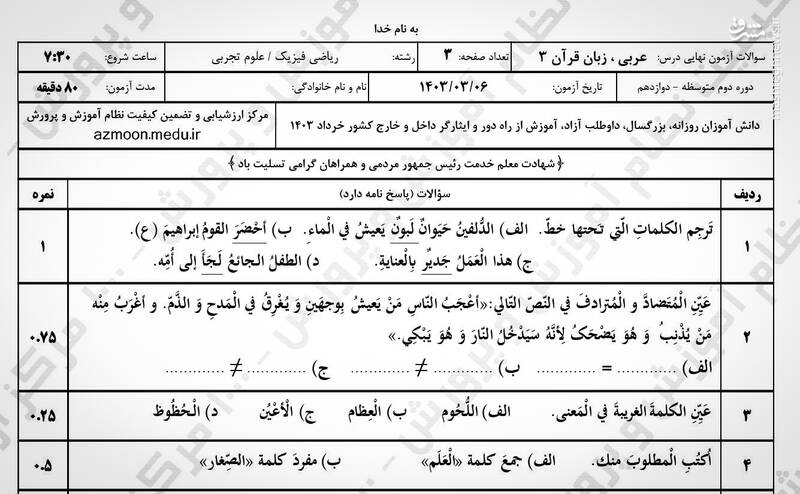 به نام خدا
سوالات آزمون نهایی درس: عربی ، زبان قرآن ۳ تعداد صفحه: ۳ رشته: ریاضی فیزیک / علوم تجربی ساعت شروع: ۷:۳۰
دوره دوم متوسطه – دوازدهم تاریخ آزمون: ۱۴۰۳/۰۳/۰۶ نام و نام خانوادگی: مدت آزمون: ۸۰ دقیقه
دانش آموزان روزانه، بزرگسال، داوطلب آزاد، آموزش از راه دور و ایثارگر داخل و خارج کشور خرداد ۱۴۰۳ مرکز ارزشیابی و تضمین کیفیت نظام آموزش و پرورش
azmoon.medu.ir
﴿ شهادت معلم خدمت رئیس جمهور مردمی و همراهان گرامی تسلیت باد ﴾
ردیف سؤالات (پاسخ نامه دارد) نمره
۱ تَرجِم الكلماتِ الّتي تَحتها خطّ. الف) الدُّلفينُ حَيَوانٌ لَبونٌ يَعيشُ في الْماءِ. ب) أحْضَرَ القومُ إبراهيمَ (ع). ۱
ج) هذا الْعَمَلُ جَديرٌ بِالْعنايةِ. د) الطفلُ الجائعُ لَجَأَ إلى أُمِّه.
۲ عَيِّنِ الْمُتَضادَّ و الْمُترادفَ في النّصّ التّالي:«أعْجَبُ النّاسِ مَنْ يَعيشُ بِوجهَينِ وَ يُغْرِقُ في الْمَدحِ وَ الذَّمِّ. و أغْرَبُ مِنْه
مَنْ يُذْنِبُ وَ هُوَ يَضْحَكُ لِأنَّهُ سَيَدْخُلُ النّارَ وَ هُوَ يَبْكِي.» ۰.۷۵
الف) ............ = ............ ب) ............ ≠ ............ ج) ............ ≠ ............
۳ عَيِّنِ الكلمةَ الغريبةَ في الْمَعنى. الف) اللُّحُوم ب) الْعِظام ج) الْأعْيُن د) الْحُظُوظ ۰.۲۵
۴ اُكتُبِ الْمطلوبَ منك. الف) جمعَ كلمة «الْعَلَم» ب) مفردَ كلمة «الصِّغار» ۰.۵